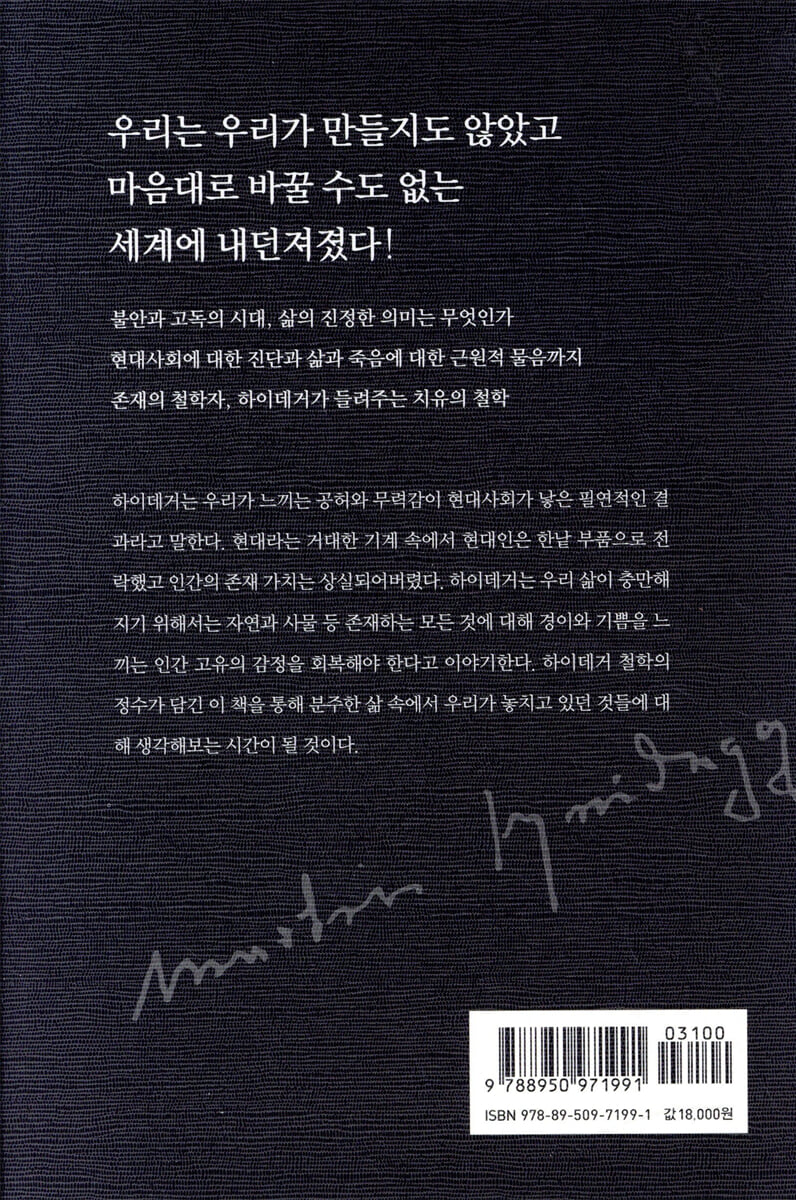 우리는 우리가 만들지도 않았고
마음대로 바꿀 수도 없는
세계에 내던져졌다!
불안과 고독의 시대, 삶의 진정한 의미는 무엇인가
현대사회에 대한 진단과 삶과 죽음에 대한 근원적 물음까지
존재의 철학자, 하이데거가 들려주는 치유의 철학
하이데거는 우리가 느끼는 공허와 무력감이 현대사회가 낳은 필연적인 결
과라고 말한다. 현대라는 거대한 기계 속에서 현대인은 한낱 부품으로 전
락했고 인간의 존재 가치는 상실되어버렸다. 하이데거는 우리 삶이 충만해
지기 위해서는 자연과 사물 등 존재하는 모든 것에 대해 경이와 기쁨을 느
끼는 인간 고유의 감정을 회복해야 한다고 이야기한다. 하이데거 철학의
정수가 담긴 이 책을 통해 분주한 삶 속에서 우리가 놓치고 있던 것들에 대
해 생각해보는 시간이 될 것이다.
03100
9 788950 971991
ISBN 978-89-509-7199-1 값 18,000원